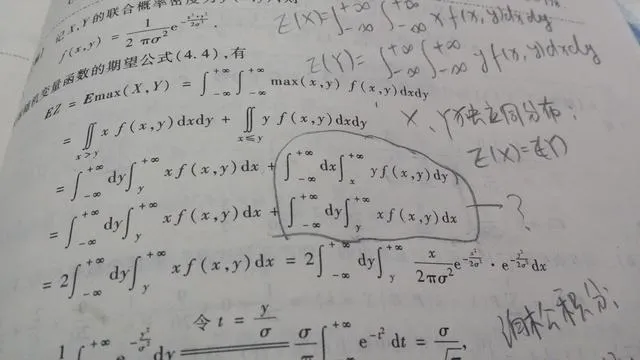 记 X,Y 的联合概率密度为
f(x,y) = \frac{1}{2πσ^2} e^{-\frac{x^2+y^2}{2σ^2}}.
机变量函数的期望公式(4.4),有
EZ = Emax(X,Y) = ∫_{-∞}^{+∞} ∫_{-∞}^{+∞} max(x,y) f(x,y)dxdy
= ∬_{x>y} x f(x,y)dxdy + ∬_{x≤y} y f(x,y)dxdy
= ∫_{-∞}^{+∞} dy ∫_{y}^{+∞} x f(x,y)dx + ∫_{-∞}^{+∞} dx ∫_{x}^{+∞} y f(x,y)dy
= ∫_{-∞}^{+∞} dy ∫_{y}^{+∞} x f(x,y)dx + ∫_{-∞}^{+∞} dy ∫_{y}^{+∞} x f(x,y)dx
= 2∫_{-∞}^{+∞} dy ∫_{y}^{+∞} x f(x,y)dx = 2∫_{-∞}^{+∞} dy ∫_{y}^{+∞} \frac{x}{2πσ^2} e^{-\frac{x^2}{2σ^2}} · e^{-\frac{y^2}{2σ^2}} dx
令 t = \frac{y}{σ}
dy ═ \frac{σ}{π} ∫_{-∞}^{+∞} e^{-t^2} dt =
E(X)=∫_{-∞}^{+∞} ∫_{-∞}^{+∞} x f(x,y)dxdy
E(Y)=∫_{-∞}^{+∞} ∫_{-∞}^{+∞} y f(x,y)dxdy
X、Y 独立同分布,
E(X)=E(Y)
→ ?
泊松积分